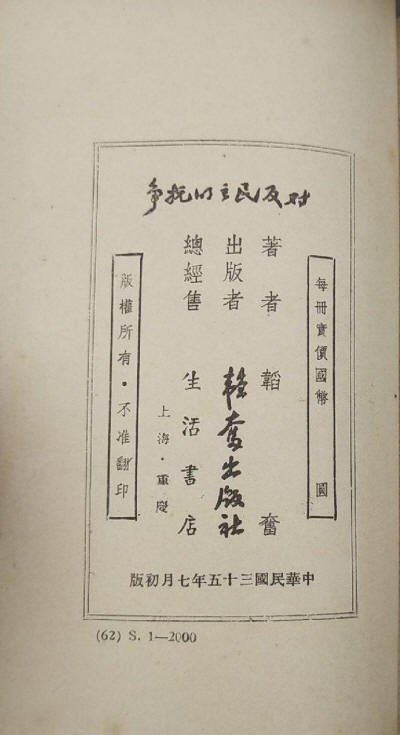 对反民主的抗争
每冊實價國幣　　圓
著者　韜奮
出版者　韜奮出版社
總經售　生活書店
上海·重慶
版權所有·不准翻印
中華民國三十五年七月初版
(62) S. 1—2000